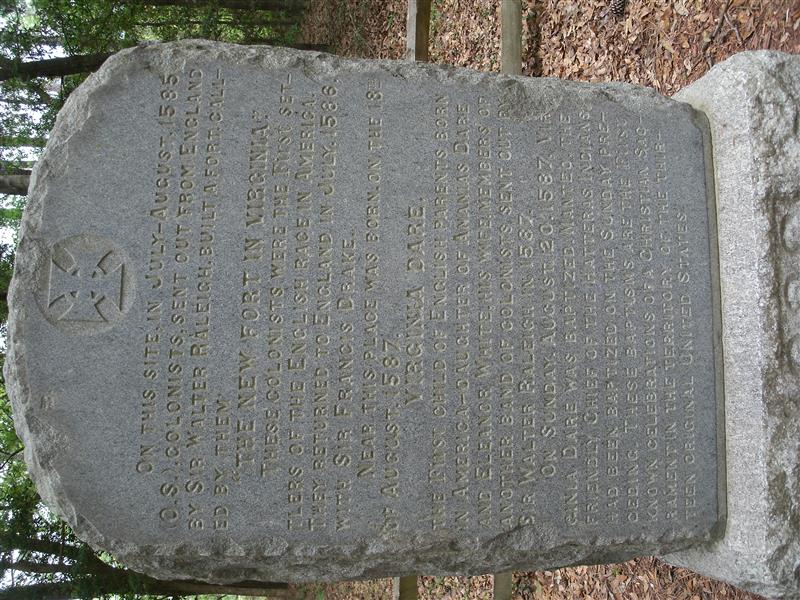 ON THIS SITE, IN JULY-AUGUST, 1585
(O.S.), COLONISTS, SENT OUT FROM ENGLAND
BY SIR WALTER RALEIGH, BUILT A FORT, CALL-
ED BY THEM
"THE NEW FORT IN VIRGINIA."
THESE COLONISTS WERE THE FIRST SET-
TLERS OF THE ENGLISH RACE IN AMERICA.
THEY RETURNED TO ENGLAND IN JULY, 1586,
WITH SIR FRANCIS DRAKE.
NEAR THIS PLACE WAS BORN, ON THE 18
OF AUGUST, 1587,
VIRGINIA DARE,
THE FIRST CHILD OF ENGLISH PARENTS BORN
IN AMERICA—DAUGHTER OF ANANIAS DARE
AND ELEANOR WHITE, HIS WIFE, MEMBERS OF
ANOTHER BAND OF COLONISTS, SENT OUT BY
SIR WALTER RALEIGH IN 1587.
ON SUNDAY, AUGUST 20, 1587, VIR-
GINIA DARE WAS BAPTIZED. MANTEO, THE
FRIENDLY CHIEF OF THE HATTERAS INDIANS,
HAD BEEN BAPTIZED ON THE SUNDAY PRE-
CEDING. THESE BAPTISMS ARE THE FIRST
KNOWN CELEBRATIONS OF A CHRISTIAN SAC-
RAMENT IN THE TERRITORY OF THE THIR-
TEEN ORIGINAL UNITED STATES.